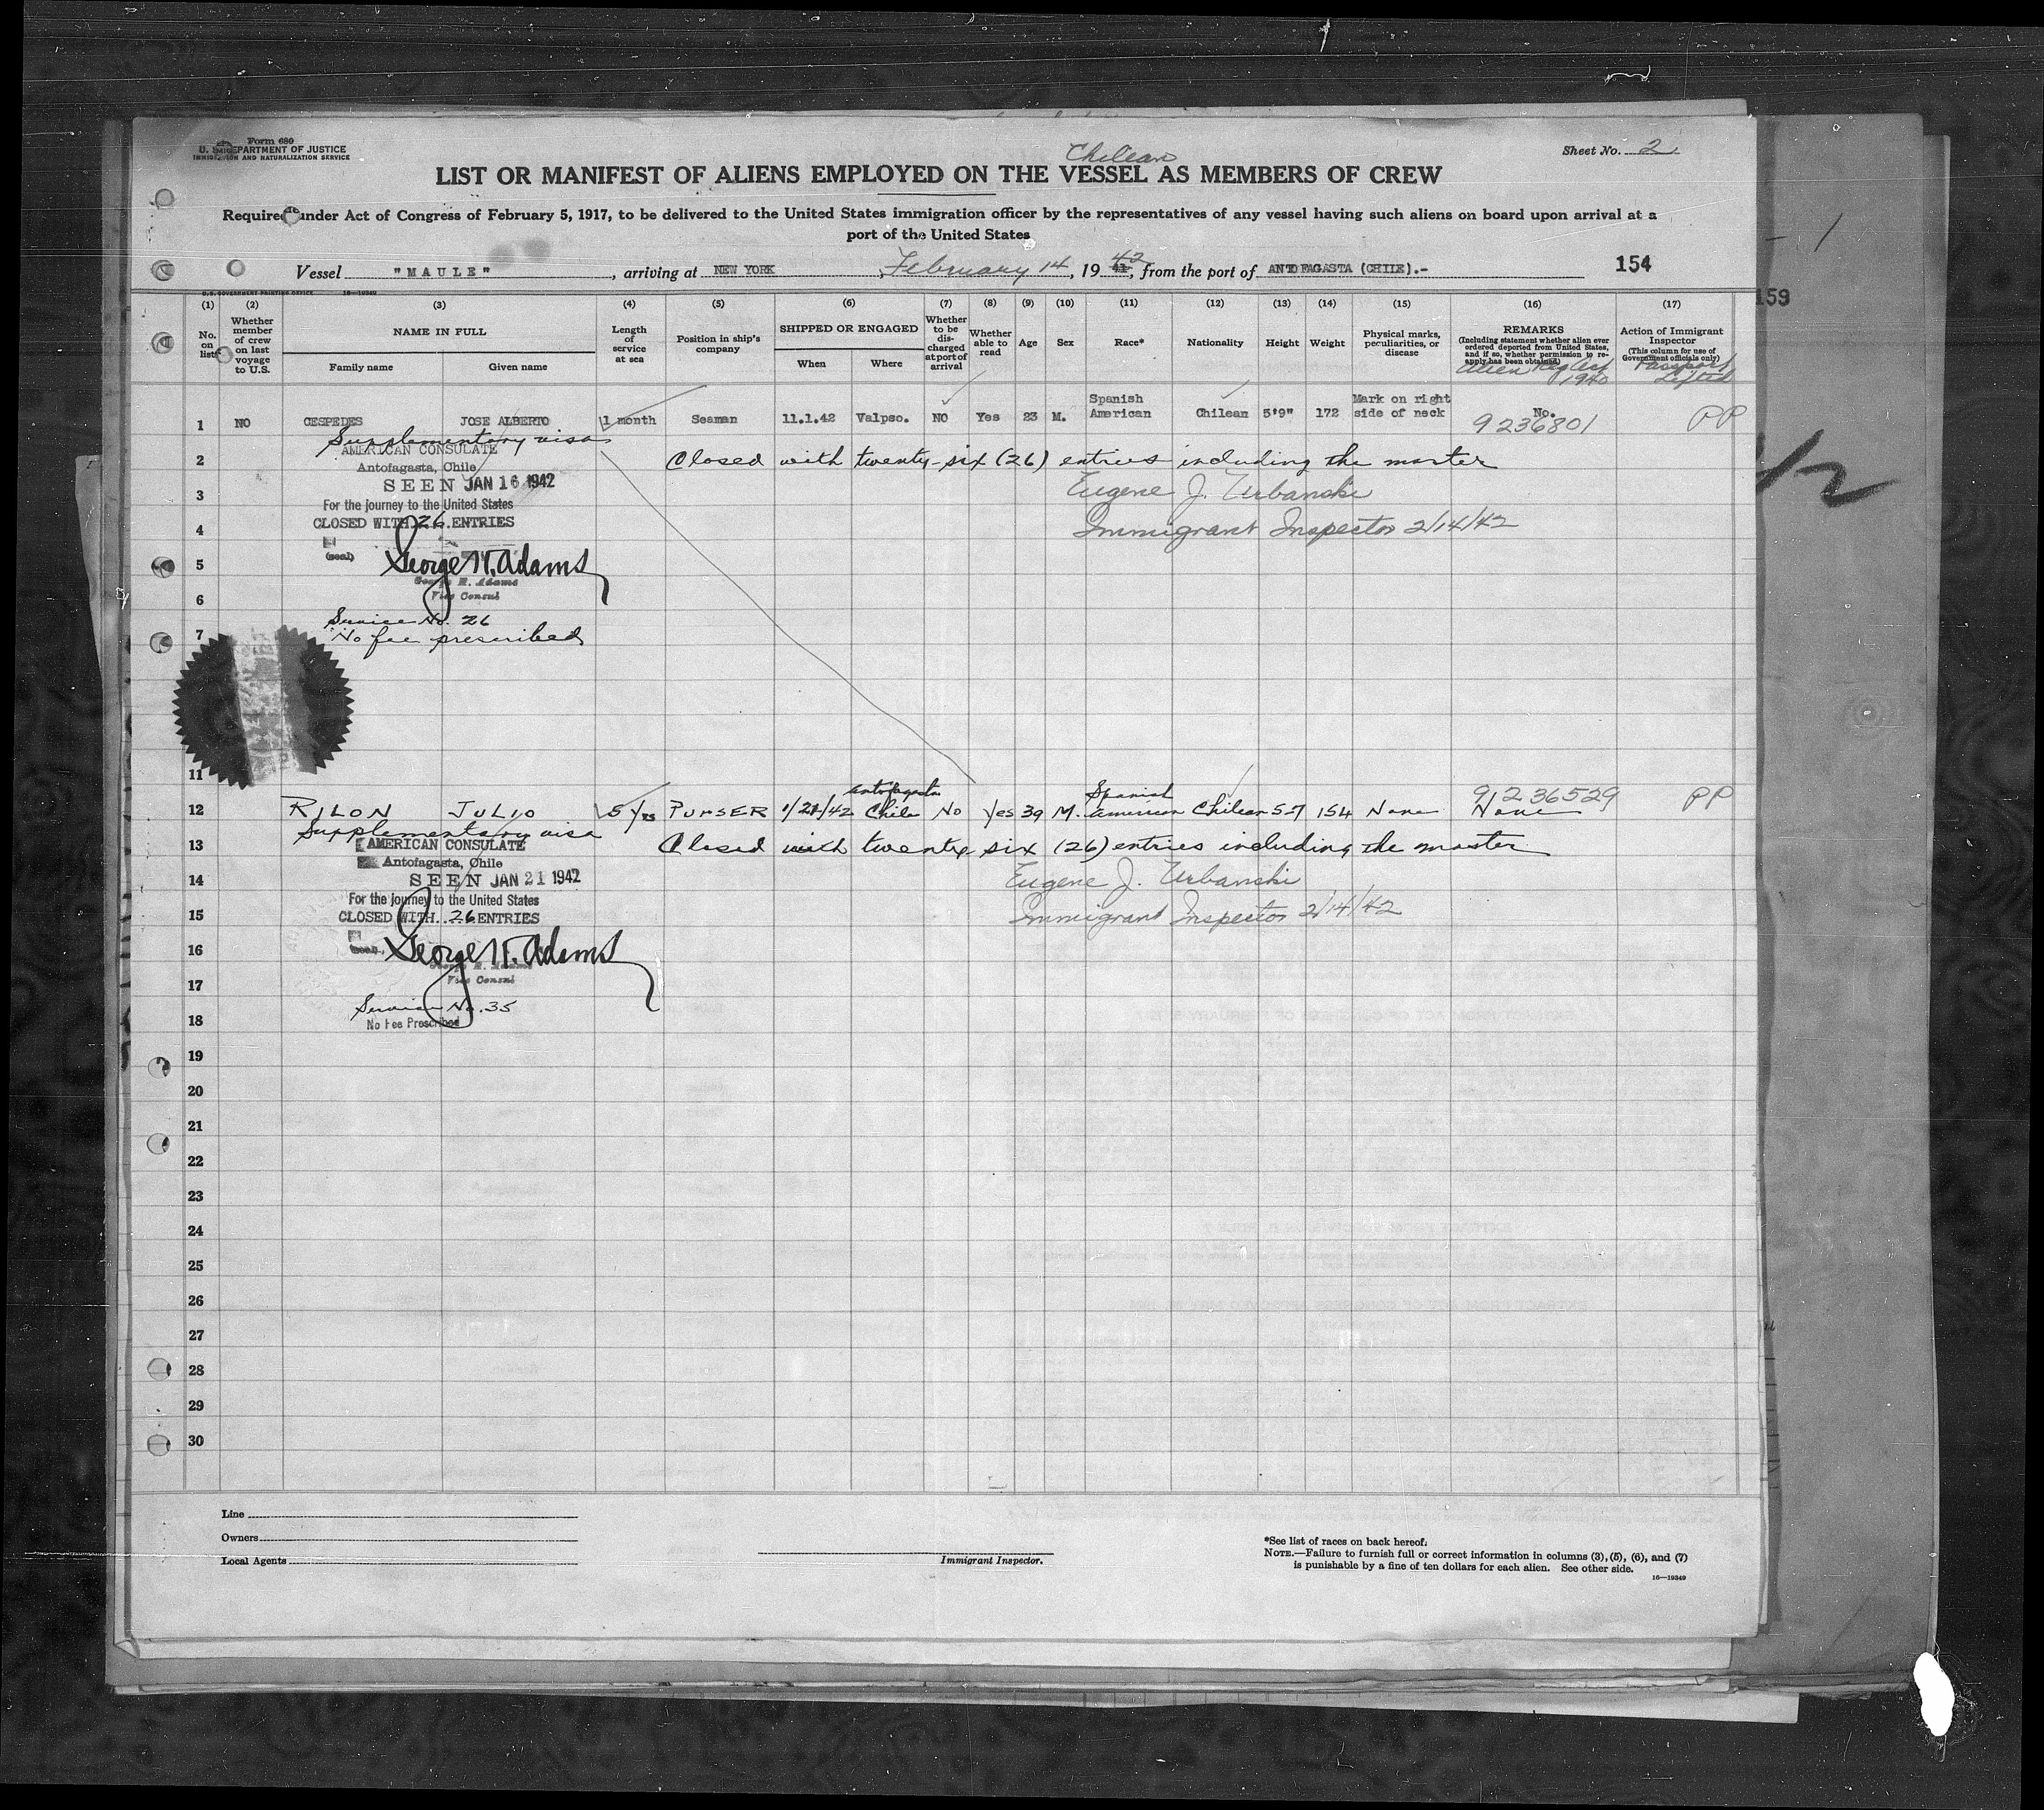 Form 680
U. S. DEPARTMENT OF JUSTICE
IMMIGRATION AND NATURALIZATION SERVICE
Chilean
Sheet No. 2
LIST OR MANIFEST OF ALIENS EMPLOYED ON THE VESSEL AS MEMBERS OF CREW
Required under Act of Congress of February 5, 1917, to be delivered to the United States immigration officer by the representatives of any vessel having such aliens on board upon arrival at a
port of the United States
Vessel "MAULE", arriving at NEW YORK, February 14, 19 41 42, from the port of ANTOFAGASTA (CHILE).-
154
159
U.S. GOVERNMENT PRINTING OFFICE 16—19349
(1) (2) (3) (4) (5) (6) (7) (8) (9) (10) (11) (12) (13) (14) (15) (16) (17)
No. on list
Whether member of crew on last voyage to U.S.
NAME IN FULL
Family name Given name
Length of service at sea
Position in ship's company
SHIPPED OR ENGAGED
When Where
Whether to be discharged at port of arrival
Whether able to read
Age
Sex
Race*
Nationality
Height
Weight
Physical marks, peculiarities, or disease
REMARKS
(Including statement whether alien ever ordered deported from United States, and if so, whether permission to reapply has been obtained)
Alien Reg Act 1940
Action of Immigrant Inspector
(This column for use of Government officials only)
Passport Lifted
1 NO CESPEDES JOSE ALBERTO 1 month Seaman 11.1.42 Valpso. NO Yes 23 M. Spanish American Chilean 5'9" 172 Mark on right side of neck No. 9236801 PP
Supplementary visa
AMERICAN CONSULATE
2 Closed with twenty-six (26) entries including the master
Antofagasta, Chile
SEEN JAN 16 1942
3 Eugene J. Urbanski
For the journey to the United States
CLOSED WITH 26 ENTRIES
4 Immigrant Inspector 2/14/42
(seal)
5 George H. Adams
George H. Adams
6 Vice Consul
Service No. 26
7 No fee prescribed
11
12 RILON JULIO 5 yrs PURSER 1/21/42 Antofagasta Chile No Yes 39 M. Spanish American Chilean 5-7 154 None None 9236529 PP
Supplementary visa
13 AMERICAN CONSULATE Closed with twenty six (26) entries including the master
Antofagasta, Chile
14 SEEN JAN 21 1942 Eugene J. Urbanski
For the journey to the United States
15 CLOSED WITH 26 ENTRIES Immigrant Inspector 2/14/42
16 George H. Adams
George H. Adams
17 Vice Consul
Service No. 35
18 No Fee Prescribed
19
20
21
22
23
24
25
26
27
28
29
30
Line
Owners
Local Agents
Immigrant Inspector.
*See list of races on back hereof.
NOTE.—Failure to furnish full or correct information in columns (3), (5), (6), and (7)
is punishable by a fine of ten dollars for each alien. See other side.
16—19349